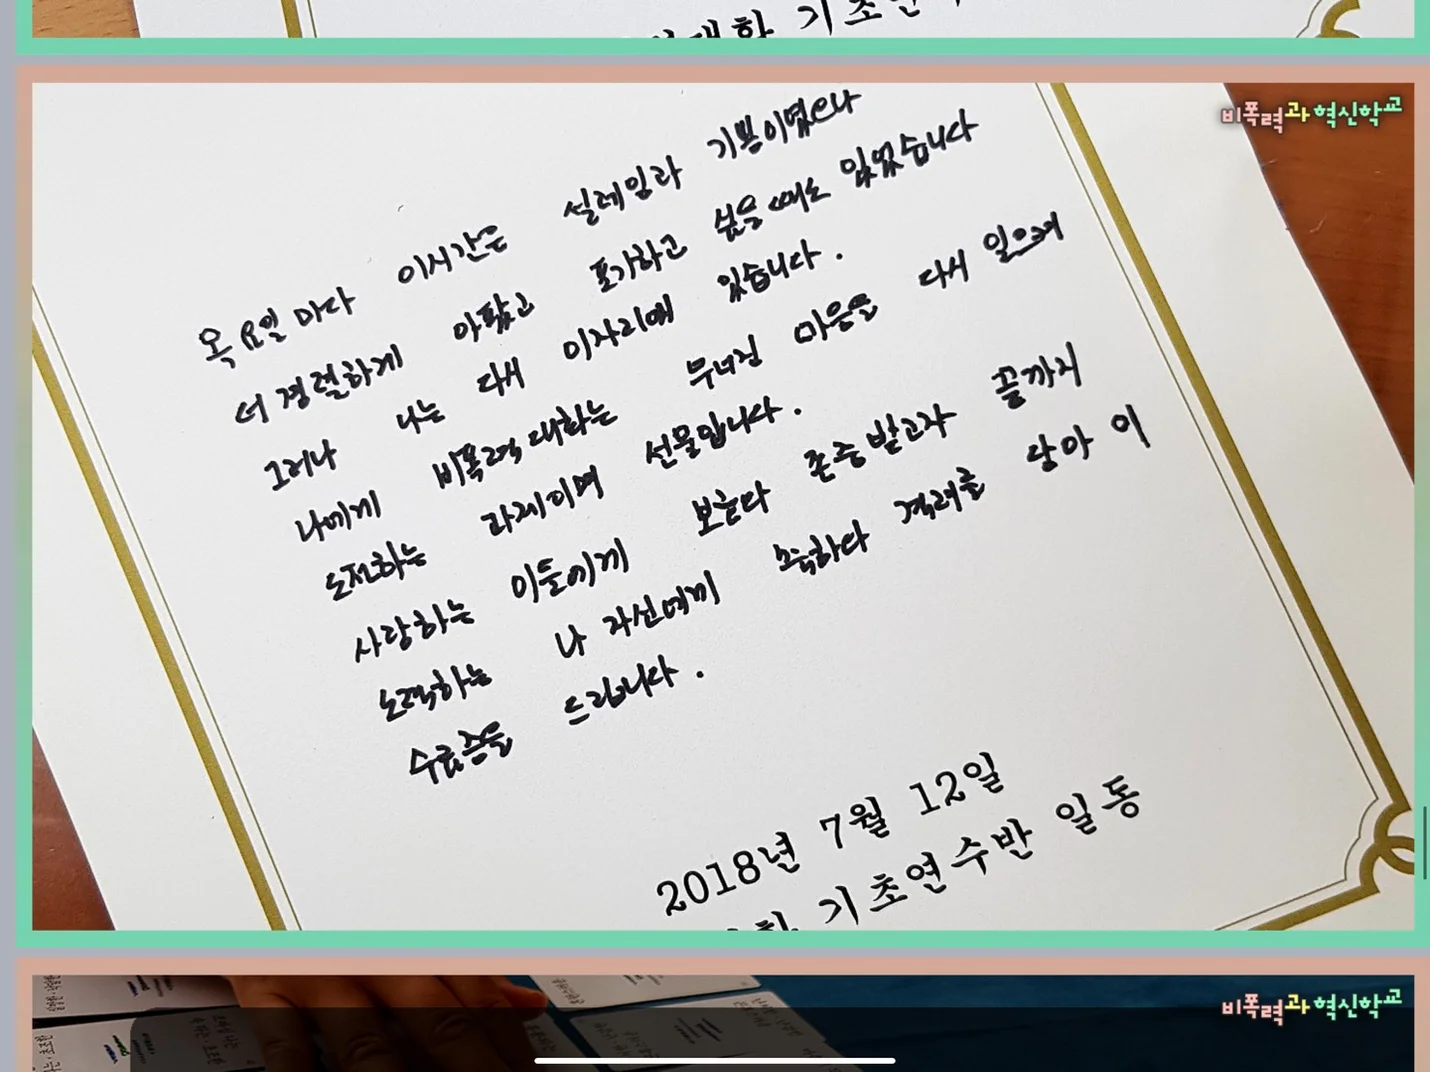 기초연
비폭력과 혁신학교
목요일마다 이시간은 설레임과 기쁨이였으나
더 경렬하게 아팠고 포기하고 싶을때도 있었습니다
그러나 나는 다시 이자리에 있습니다.
나에게 비폭력대화는 무너진 마음을 다시 일으켜
도전하는 과제이며 선물입니다.
사랑하는 이들에게 보는다 존중받고자 끝까지
노력하는 나 자신에게 격려를 담아 이
수료증을 드립니다.
2018년 7월 12일
기초연수반 일동
비폭력과 혁신학교